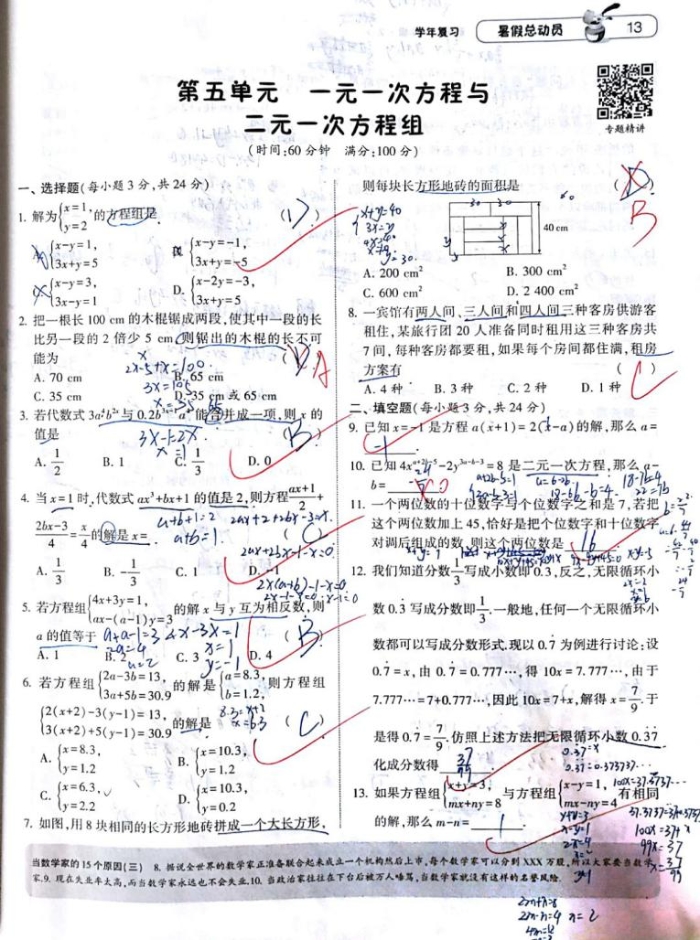 学年复习
暑假总动员
13
第五单元 一元一次方程与
二元一次方程组
专题精讲
(时间:60分钟 满分:100分)
一、选择题(每小题3分,共24分)
1. 解为{x=1, y=2 的方程组是 (D)
A. {x-y=1, 3x+y=5
B. {x-y=-1, 3x+y=-5
C. {x-y=3, 3x-y=1
D. {x-2y=-3, 3x+y=5
2. 把一根长100 cm的木棍锯成两段,使其中一段的长
比另一段的2倍少5 cm,则锯出的木棍的长不可
能为 A
A. 70 cm B. 65 cm
C. 35 cm D. 35 cm或65 cm
2x-5+x=100
3x=105
x=35
3. 若代数式3a⁴b²ˣ与0.2b³ˣ⁻¹a⁴能合并成一项,则x的
值是 (B)
3x-1=2x
x=1
A. 1/2 B. 1 C. 1/3 D. 0
4. 当x=1时,代数式ax³+bx+1的值是2,则方程(ax+1)/2+
(2bx-3)/4=x/4的解是x= (C)
a+b+1=2
a+b=1
A. 1/3 B. -1/3 C. 1 D. -1
5. 若方程组{4x+3y=1, ax-(a-1)y=3 的解x与y互为相反数,则
a的值等于 (B)
a+a-1=3
2a=4
a=2
4x-3x=1
x=1
y=-1
A. 1 B. 2 C. 3 D. 4
6. 若方程组{2a-3b=13, 3a+5b=30.9 的解是{a=8.3, b=1.2, 则方程组
{2(x+2)-3(y-1)=13, 3(x+2)+5(y-1)=30.9 的解是 (C)
8.3=x+2
x=6.3
A. {x=8.3, y=1.2
B. {x=10.3, y=1.2
C. {x=6.3, y=2.2
D. {x=10.3, y=0.2
7. 如图,用8块相同的长方形地砖拼成一个大长方形,
则每块长方形地砖的面积是 (D)
B
x+y=40
3x=y
y=30
30 30
x
y
40 cm
A. 200 cm² B. 300 cm²
C. 600 cm² D. 2 400 cm²
8. 一宾馆有两人间、三人间和四人间三种客房供游客
租住,某旅行团20人准备同时租用这三种客房共
7间,每种客房都要租,如果每个房间都住满,租房
方案有 ( )
A. 4种 B. 3种 C. 2种 D. 1种
二、填空题(每小题3分,共24分)
9. 已知x=-1是方程a(x+1)=2(x-a)的解,那么a=
-1 .
10. 已知4xᵃ⁺²ᵇ⁻⁵-2y³ᵃ⁻ᵇ⁻³=8是二元一次方程,那么a-
b= 0
11. 一个两位数的十位数字与个位数字之和是7,若把
这个两位数加上45,恰好是把个位数字和十位数字
对调后组成的数,则这个两位数是 16
x+y=7
12. 我们知道分数1/3写成小数即0.3̇,反之,无限循环小
数0.3̇写成分数即1/3.一般地,任何一个无限循环小
数都可以写成分数形式.现以0.7̇为例进行讨论:设
0.7̇=x,由0.7̇=0.777⋯,得10x=7.777⋯,由于
7.777⋯=7+0.777⋯,因此10x=7+x,解得x=7/9.于
是得0.7̇=7/9.仿照上述方法把无限循环小数0.3̇7̇
化成分数得 37/99
0.37=x
0.37=0.373737⋯
100x=37.3737⋯
37.3737=37+0.3737
100x=37+x
99x=37
x=37/99
13. 如果方程组{x+y=3, mx+ny=8 与方程组{x-y=1, mx-ny=4 有相同
的解,那么m-n= 1 .
x+y=3
x-y=1
2x=4
2m+n=8
2m-n=4
n=2
当数学家的15个原因(三) 8. 据说全世界的数学家正准备联合起来成立一个机构然后上市,每个数学家可以分到XXX万股,所以大家要当数学
家.9. 现在失业率太高,而当数学家永远也不会失业.10. 当政治家往往在下台后被万人唾骂,当数学家就没有这样的名誉风险.